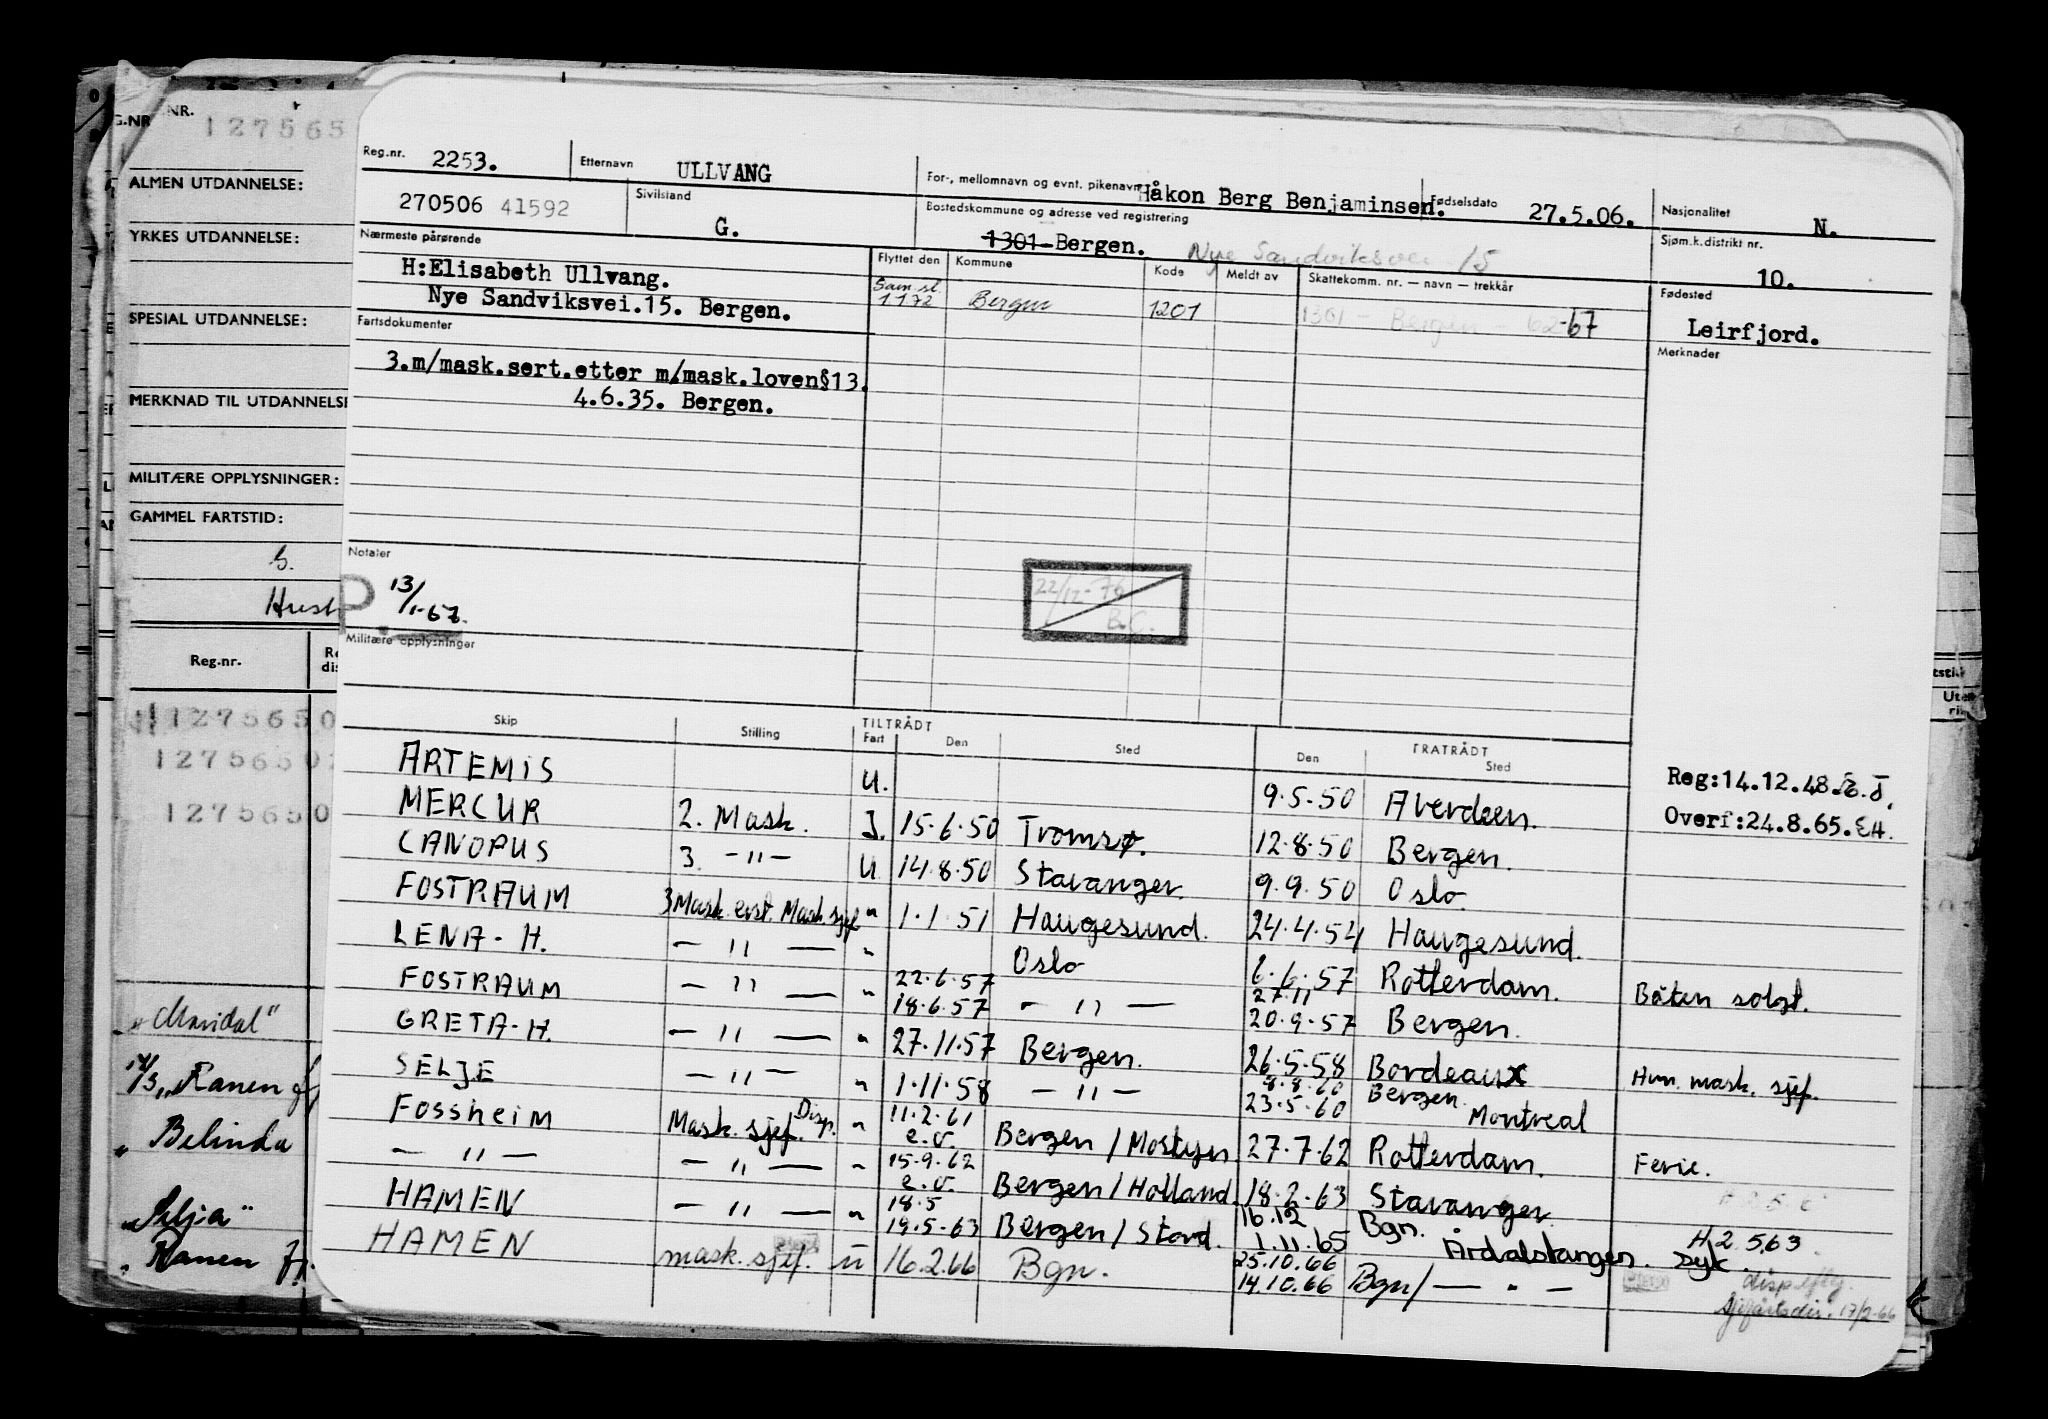 G.NR NR. 127565
ALMEN UTDANNELSE:
YRKES UTDANNELSE:
SPESIAL UTDANNELSE:
MERKNAD TIL UTDANNELSE
MILITÆRE OPPLYSNINGER:
GAMMEL FARTSTID:
Reg.nr.
1275650
1275650
1275650
"Ranen
" Belinda
"Silja"
" Ranen
Reg.nr. 2253. Etternavn ULLVANG For-, mellomnavn og evnt. pikenavn Håkon Berg Benjaminsen. Fødselsdato 27.5.06. Nasjonalitet N.
270506 41592 Sivilstand G. Bostedskommune og adresse ved registrering 1301-Bergen. Nye Sandviksvei 15 Sjøm.k.distrikt nr. 10.
Nærmeste pårørende Flyttet den Kommune Kode Meldt av Skattekomm. nr. — navn — trekkår Fødested
H:Elisabeth Ullvang. Sam.st.
Nye Sandviksvei.15. Bergen. 1172 Bergen 1201 1301 - Bergen - 62-67 Leirfjord.
Fartsdokumenter Merknader
3.m/mask.sert.etter m/mask.loven§13.
4.6.35. Bergen.
Notater
P 13/1-67. 22/12-76 B.C.
Militære opplysninger
Skip Stilling TILTRÅDT Fart Den Sted FRATRÅDT Den Sted
ARTEMIS U. 9.5.50 Averdeen. Reg:14.12.48.
MERCUR 2. Mask. J. 15.6.50 Tromsø. 12.8.50 Bergen. Overf:24.8.65.EH.
CANOPUS 3. -"- U 14.8.50 Stavanger. 9.9.50 Oslo.
FOSTRAUM 3 Mask. evst. Mask. sjef " 1.1.51 Haugesund. 24.4.54 Haugesund.
LENA - H. — " — " Oslo 6.6.57 Rotterdam. Båten solgt.
FOSTRAUM — " — " 22.6.57 18.6.57 — " — 27.11 20.9.57 Bergen.
GRETA-H. — " — " 27.11.57 Bergen. 26.5.58 Bordeaux Hun. mask. sjef.
SELJE — " — " 1.11.58 — " — 8.8.60 Bergen. 23.5.60 Montreal
FOSSHEIM Mask. sjef. Disp. " 11.2.61 e.v. Bergen / Mostyn 27.7.62 Rotterdam. Ferie.
— " — — " — " 15.9.62 e.v. Bergen / Holland. 18.2.63 Stavanger
HAMEN — " — " 18.5 19.5-63 Bergen / Stord. 16.12 Bgn. 1.11.65 Årdalstangen. H.2.5.63. Syk.
HAMEN mask. sjef. ü 16.2.66 Bgn. 25.10.66 14.10.66 Bgn/ — " — disp. 17/2-66